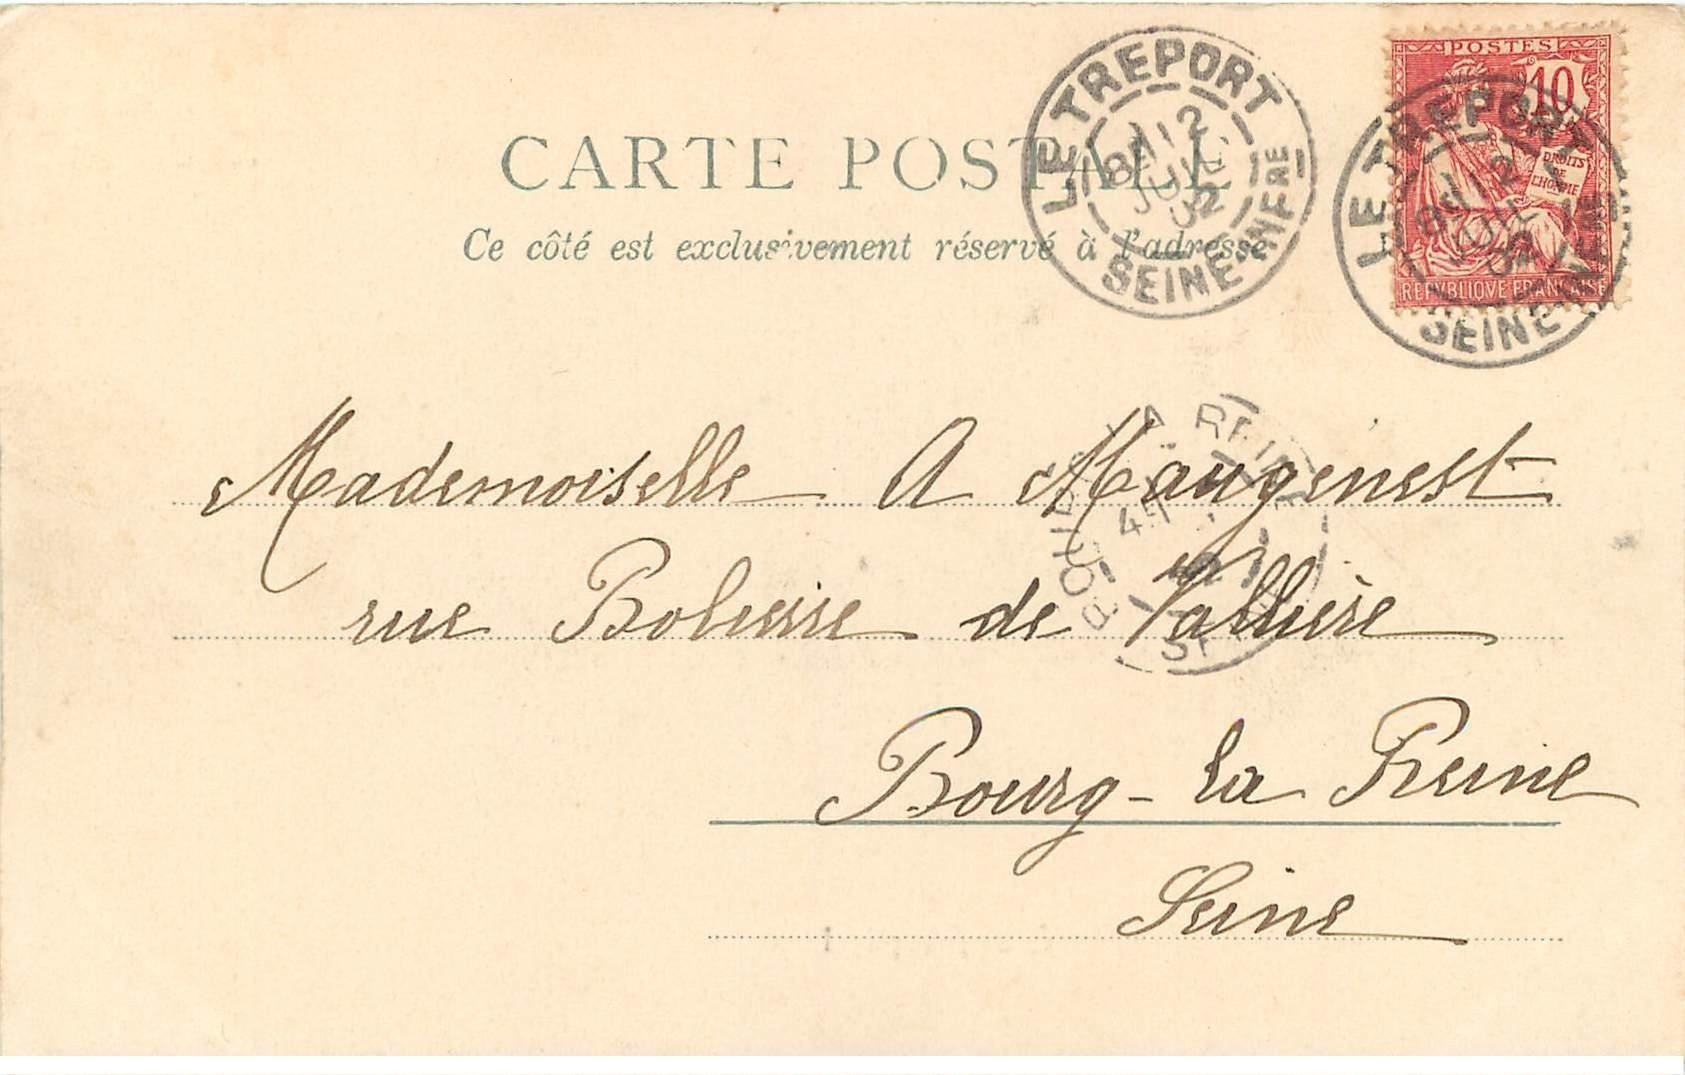 CARTE POSTALE
Ce côté est exclusivement réservé à l'adresse
LE TREPORT
12
JUIL
02
SEINE INFRE
POSTES
10
DROITS
DE
L'HOMME
REPVBLIQVE FRANÇAISE
LE TREPORT
12
JUIL
02
SEINE INFRE
Mademoiselle A Maugenest
rue de Vallière
Bourg-la Reine
Seine